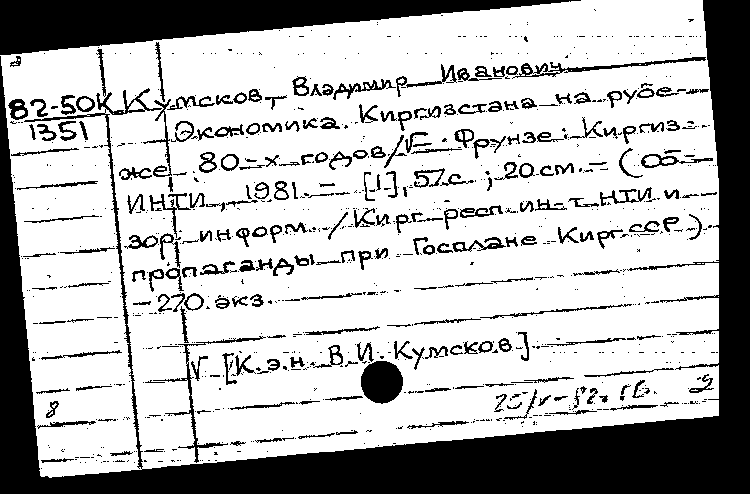 82-50К Кумсков, Владимир Иванович
1351 Экономика Киргизстана на рубе-
же 80-х годов/√ . - Фрунзе : Киргиз-
ИНТИ, 1981. - [1], 57с. ; 20см. - (Об-
зор. информ. /Кирг. респ. ин-т НТИ и
пропаганды при Госплане Кирг.ССР)
- 270 экз.
√ [К.э.н. В.И. Кумсков]
8